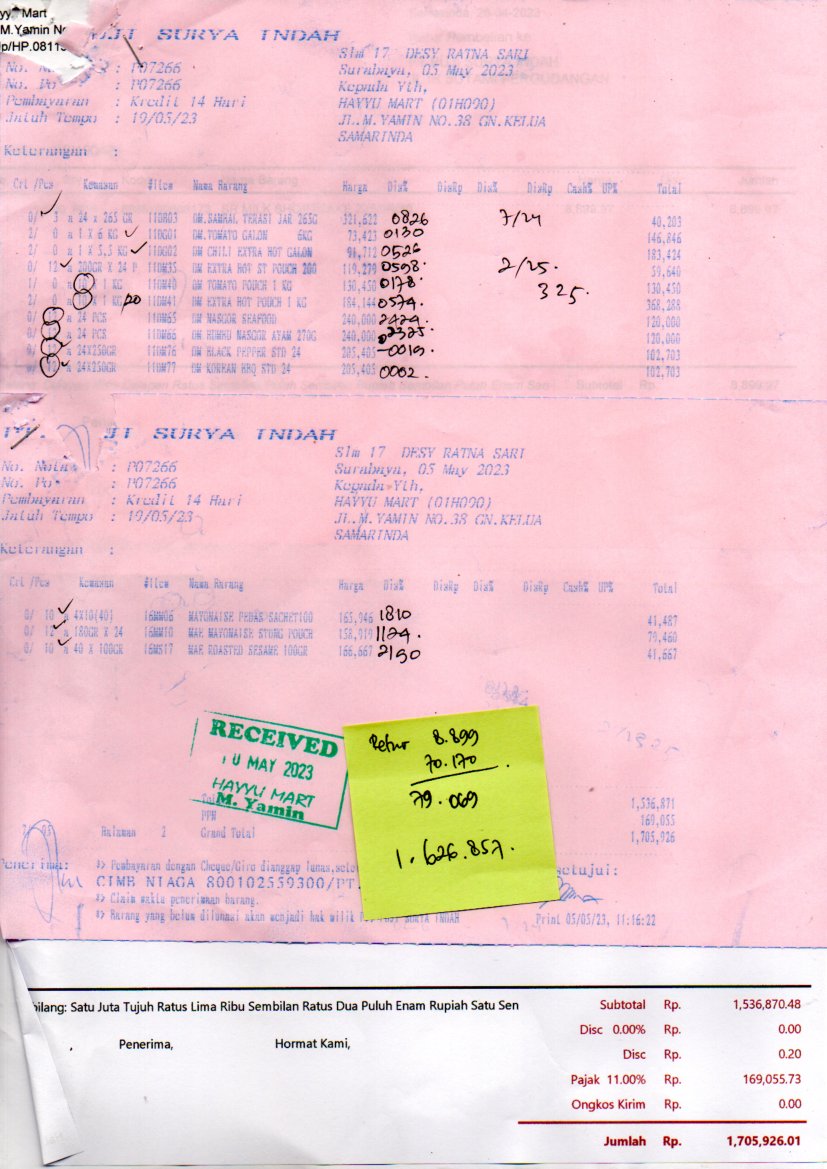 Mart
M.Yamin
p/HP.0811
SURYA INDAH
Slm 17 DESY RATNA SARI
No. : P07266 Surabaya, 05 May 2023
No. Po : P07266 Kepada Yth,
Pembayaran : Kredit 14 Hari HAYYU MART (01H090)
Jatuh Tempo : 19/05/23 JL.M.YAMIN NO.38 GN.KELUA
SAMARINDA
Keterangan :
Crt /Pcs Kemasan #Item Nama Barang Harga Dis% DisRp Dis% DisRp Cash% UP% Total
0/ 3 a 24 x 265 GR 11DR03 DM.SAMBAL TERASI JAR 265G 321,622 0826 7/24 40,203
2/ 0 a 1 X 6 KG 11DG01 DM.TOMATO GALON 6KG 73,423 0130 146,846
2/ 0 a 1 X 5,5 KG 11DG02 DM CHILI EXTRA HOT GALON 91,712 0526 183,424
0/ 12 a 200GR X 24 P 11DM35 DM EXTRA HOT ST POUCH 200 119,279 0598. 2/25. 59,640
1/ 0 a 1 KG 11DM40 DM TOMATO POUCH 1 KG 130,450 0178. 325. 130,450
2/ 0 a X 1 KG 11DM41 DM EXTRA HOT POUCH 1 KG 184,144 0574. 368,288
0/ 12 a 24 PCS 11DM65 DM NASGOR SEAFOOD 240,000 2424. 120,000
0/ 12 a 24 PCS 11DM66 DM BUMBU NASGOR AYAM 270G 240,000 2325 120,000
0/ 12 a 24X250GR 11DM76 DM BLACK PEPPER STD 24 205,405 0019. 102,703
0/ 12 a 24X250GR 11DM77 DM KOREAN BBQ STD 24 205,405 0002. 102,703
Subtotal Rp. 8,899.97
SURYA INDAH
Slm 17 DESY RATNA SARI
No. Nota : P07266 Surabaya, 05 May 2023
No. Po : P07266 Kepada Yth,
Pembayaran : Kredit 14 Hari HAYYU MART (01H090)
Jatuh Tempo : 19/05/23 JL.M.YAMIN NO.38 GN.KELUA
SAMARINDA
Keterangan :
Crt /Pcs Kemasan #Item Nama Barang Harga Dis% DisRp Dis% DisRp Cash% UP% Total
0/ 10 a 4X10(40) 16MM06 MAYONAISE PEDAS SACHET100 165,946 1810 41,487
0/ 12 a 180GR X 24 16MM10 MAE MAYONAISE STDNG POUCH 158,919 1124. 79,460
0/ 10 a 40 X 100GR 16MS17 MAE ROASTED SESAME 100GR 166,667 2190 41,667
RECEIVED
10 MAY 2023
HAYYU MART
M. Yamin
Retur 8.899
70.170
79.069
1.626.857.
1,536,871
PPN 169,055
Halaman 2 Grand Total 1,705,926
Penerima: *) Pembayaran dengan Cheque/Giro dianggap lunas,sete setujui:
CIMB NIAGA 800102559300/PT.
*) Claim waktu penerimaan barang.
*) Barang yang belum dilunasi akan menjadi hak milik SURYA INDAH Print 05/05/23, 11:16:22
bilang: Satu Juta Tujuh Ratus Lima Ribu Sembilan Ratus Dua Puluh Enam Rupiah Satu Sen
Penerima, Hormat Kami,
Subtotal Rp. 1,536,870.48
Disc 0.00% Rp. 0.00
Disc Rp. 0.20
Pajak 11.00% Rp. 169,055.73
Ongkos Kirim Rp. 0.00
Jumlah Rp. 1,705,926.01